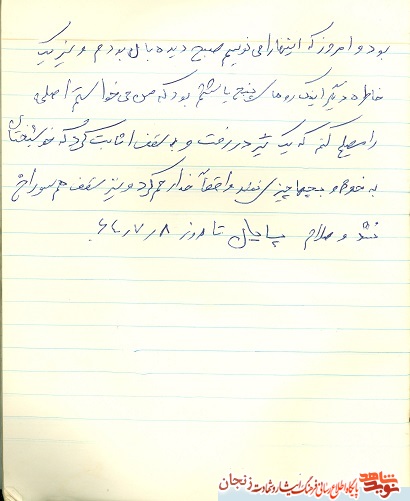 بود و امروز که اینها را می نویسم صبح دیده بال بودم و نیز یک
خاطره دیگر اینکه روز پنج شتم بود که من می خواستم اصلی
را مسلح کنم که یک تیر در رفت و به سقف اثابت کرد که خوشبختانه
به خودم و بچه ها چیزی نشد واقعاً خدا رحم کرد و نیز سقف هم سوراخ
نشد و سلام پایان تا روز ۸ ر ۷ ر ۶۰
نوید شاهد
پایگاه اطلاع رسانی فرهنگ ایثار و شهادت زنجان